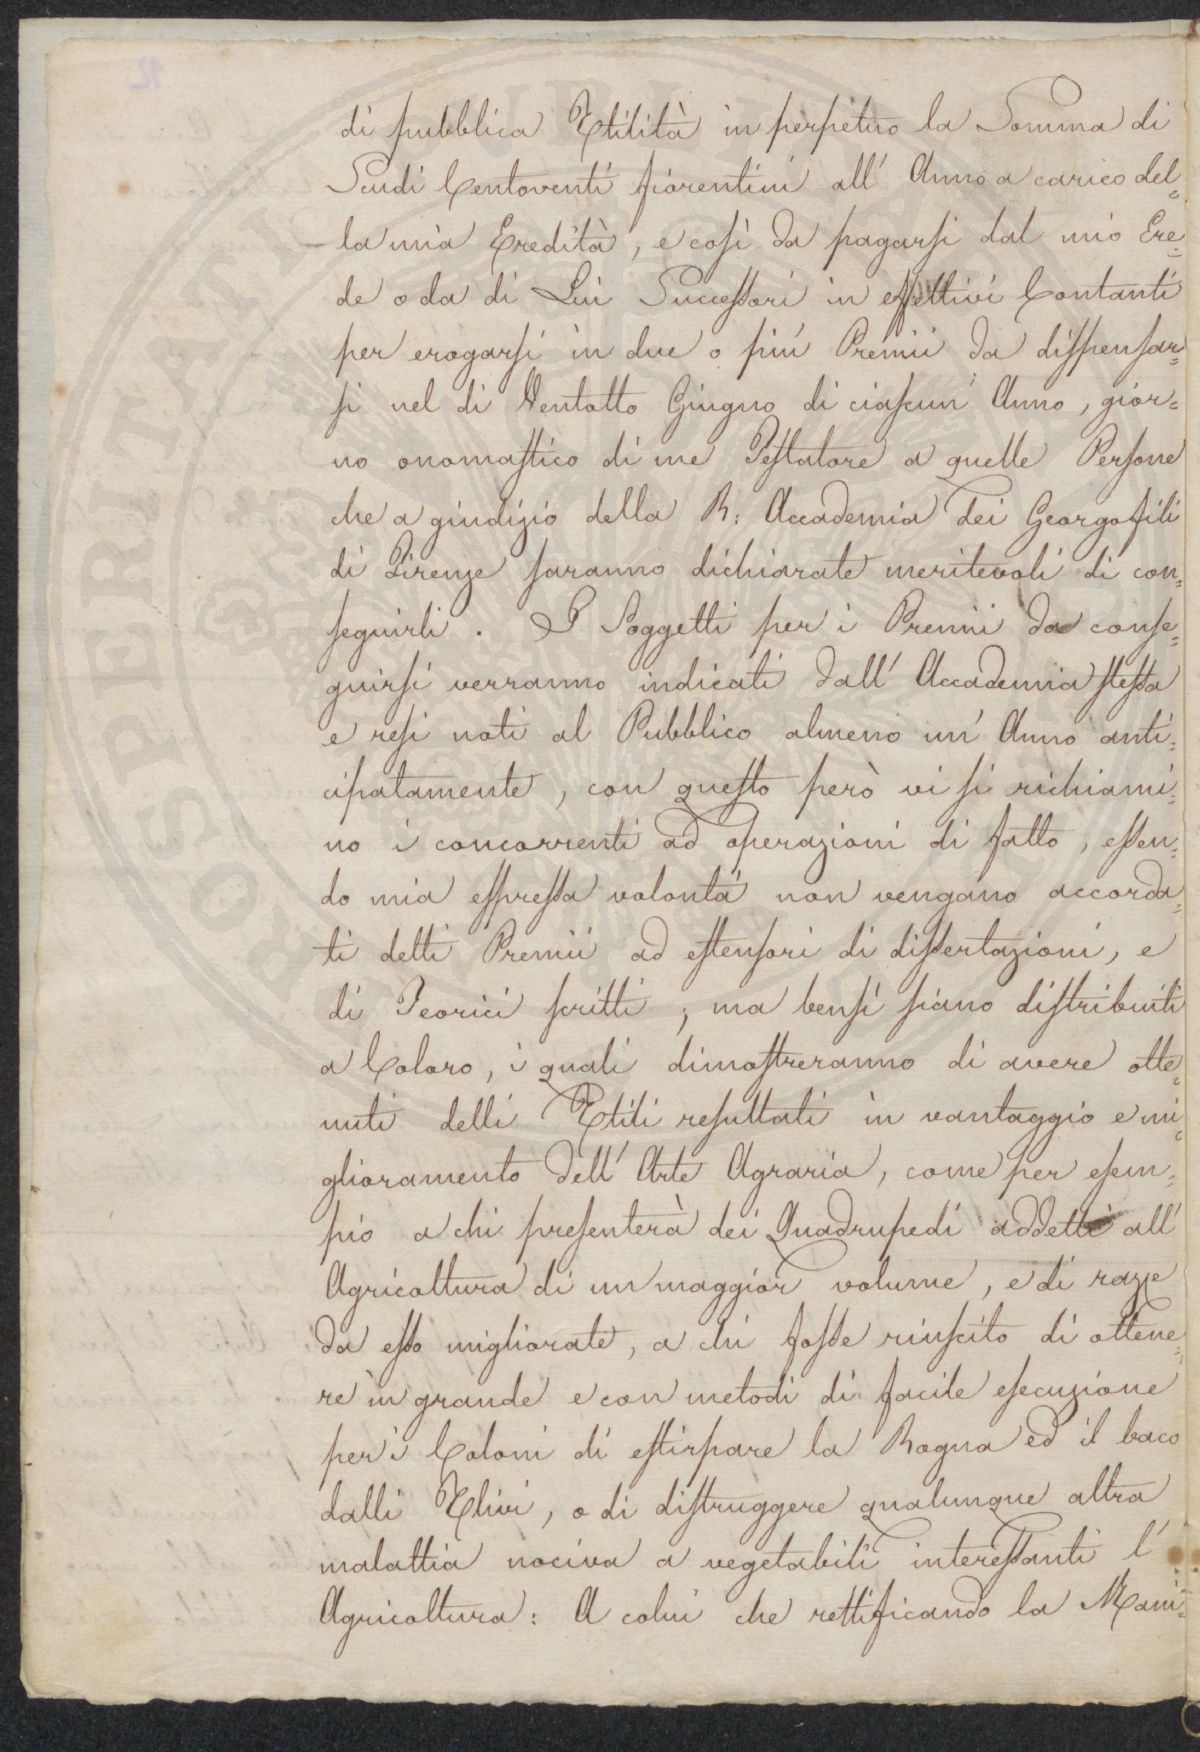 di pubblica Utilità in perpetuo la Somma di
Scudi Centoventi fiorentini all' Anno a carico del=
la mia Eredità, e così da pagarsi dal mio Ere=
de o da di Lui Successori in effettivi Contanti
per erogarsi in due o più Premii da dispensar=
si nel dì Ventotto Giugno di ciascun' Anno, gior=
no onomastico di me Testatore a quelle Persone
che a giudizio della R: Accademia dei Georgofili
di Firenze saranno dichiarate meritevoli di con=
seguirli. I Soggetti per i Premii da conse=
guirsi verranno indicati dall' Accademia stessa
e resi noti al Pubblico almeno un' Anno anti=
cipatamente, con questo però vi si richiami=
no i concorrenti ad operazioni di fatto, essen=
do mia espressa volontà non vengano accorda=
ti detti Premii ad estensori di dissertazioni, e
di Teorici scritti; ma bensì siano distribuiti
a Coloro, i quali dimostreranno di avere otte=
nuti delli Utili resultati in vantaggio e mi=
glioramento dell' Arte Agraria, come per esem=
pio a chi presenterà dei Quadrupedi addetti all'
Agricoltura di un maggior volume, e di razze
da esso migliorate, a chi fosse riuscito di ottene=
re in grande e con metodi di facile esecuzione
per i Coloni di estirpare la Rogna ed il baco
dalli Ulivi, o di distruggere qualunque altra
malattia nociva a vegetabili interessanti l'
Agricoltura: A colui che rettificando la Mani=
SPERITATI
12